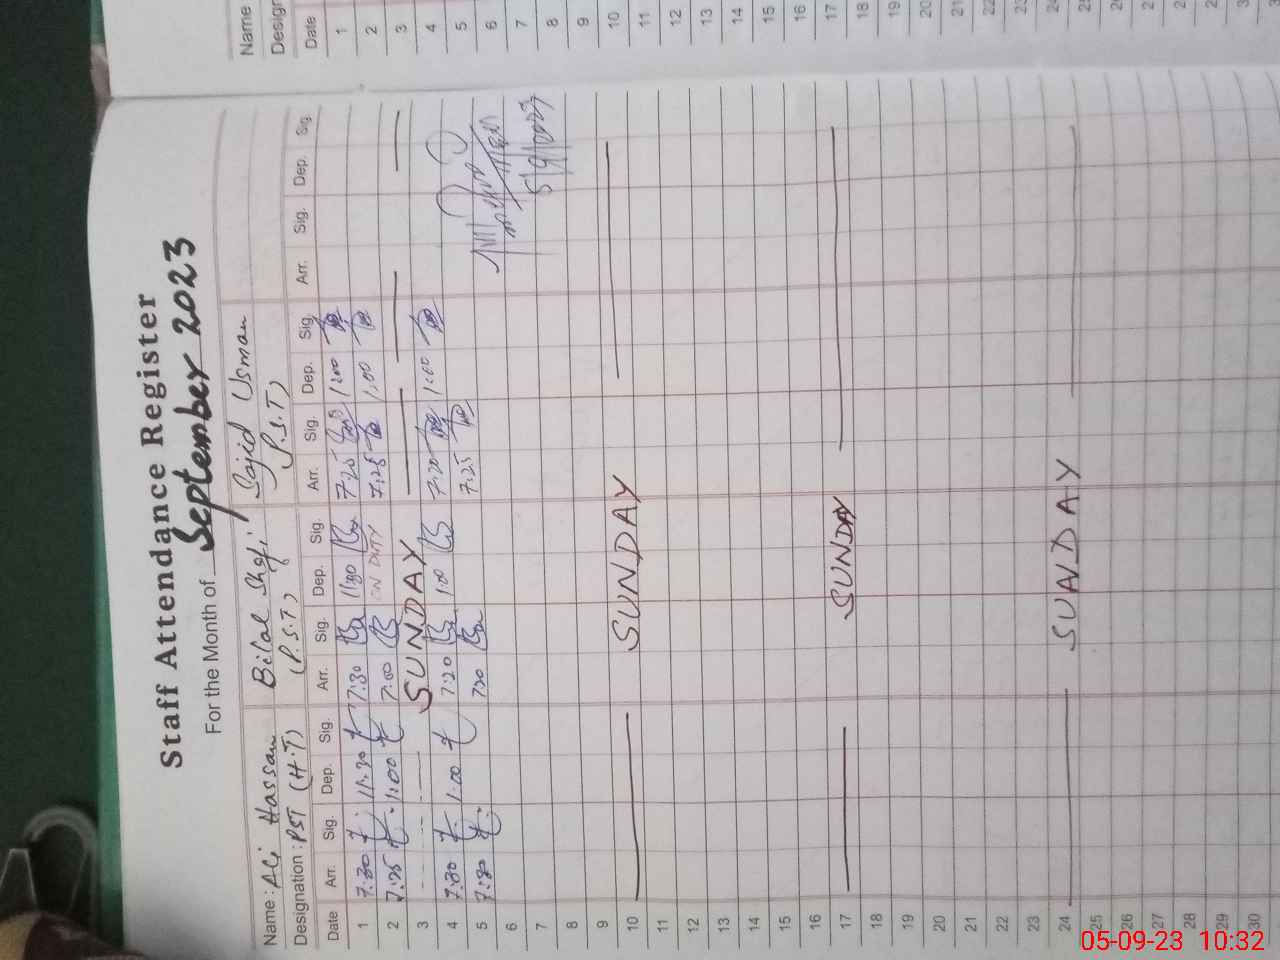 Staff Attendance Register
For the Month of September 2023
Name : Ali Hassan Bilal Shafi Sajid Usman
Designation : PST (H.T) (P.S.T) P.S.T)
Date Arr. Sig. Dep. Sig. Arr. Sig. Dep. Sig. Arr. Sig. Dep. Sig. Arr. Sig. Dep. Sig.
1 7:30 11:30 7:30 11:30 7:25
2 7:25 1:00 7:00 ON DUTY 7:25 1:00
3 SUNDAY
4 7:30 1:00 7:20 1:00 7:20 1:00
5 7:30 720 7:25
6
7
8
9
10 SUNDAY
11
12
13
14
15
16
17 SUNDAY
18
19
20
21
22
23
24 SUNDAY
25
26
27
28
29
30
Name
Design
Date
1
2
3
4
5
6
7
8
9
10
11
12
13
14
15
16
17
18
19
20
21
22
23
24
25
26
05-09-23 10:32